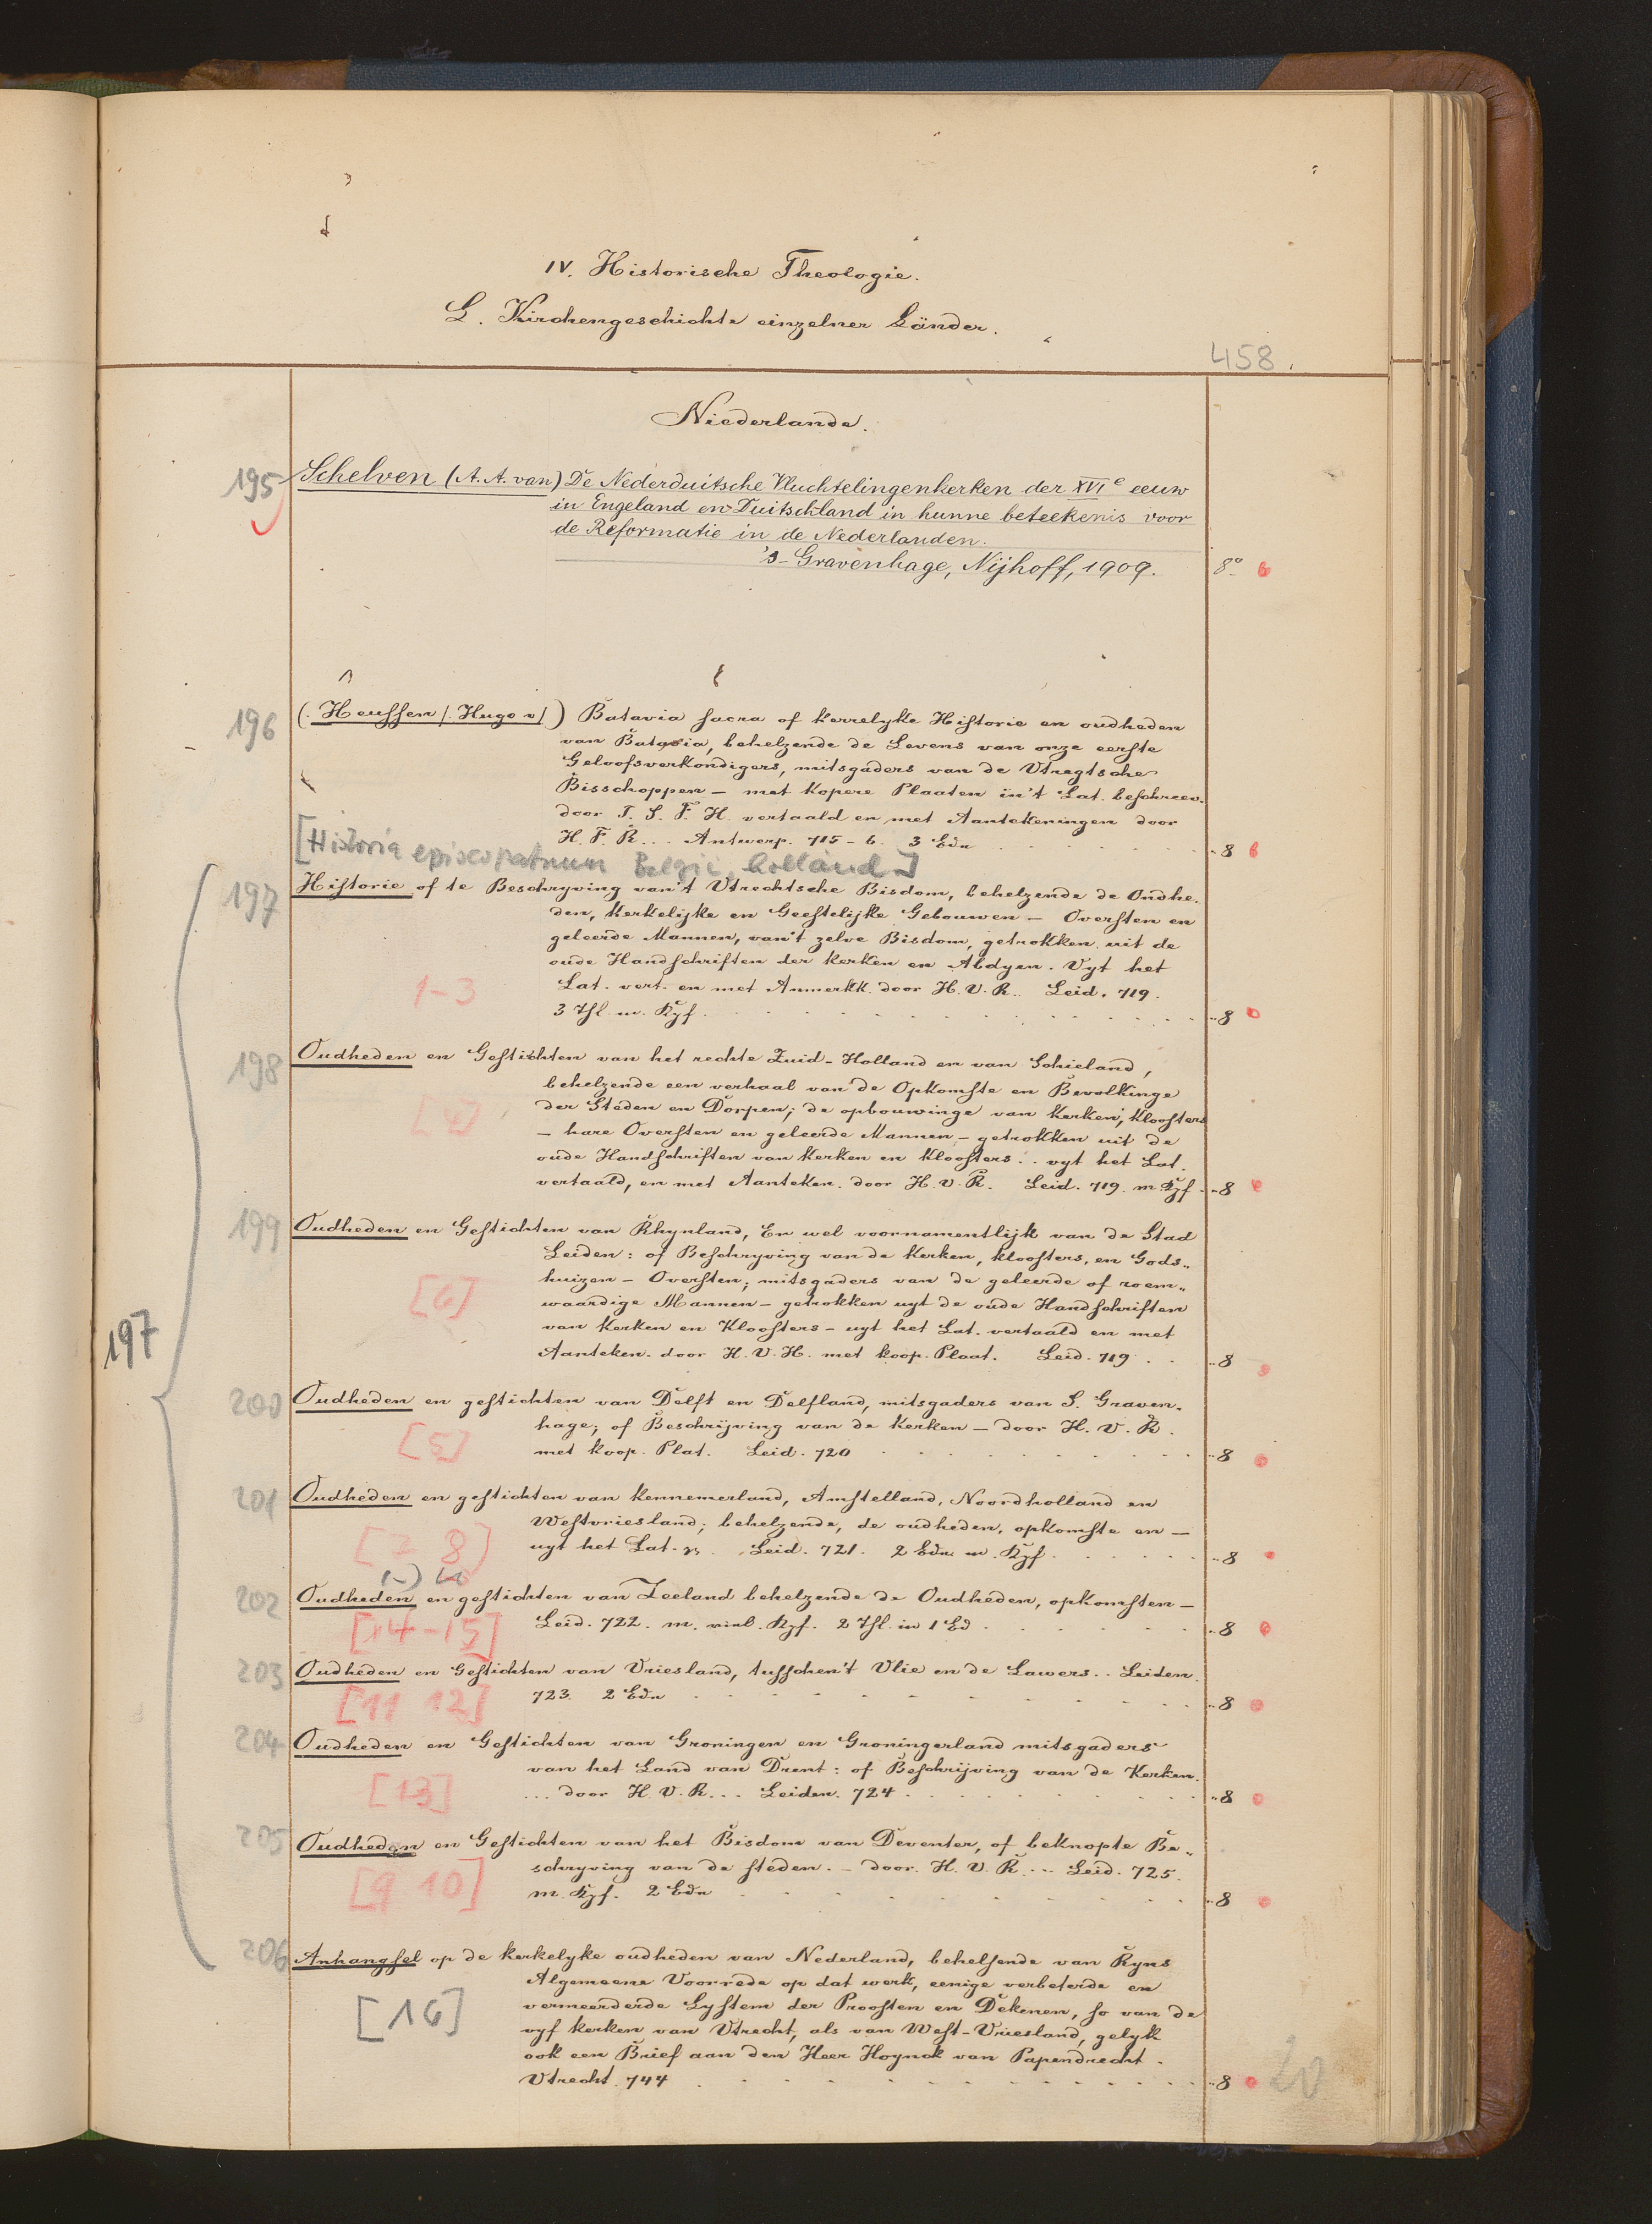 IV. Historische Theologie.
L. Kirchengeschichte einzelner Länder.
458.
Niederlande.
195 Schelven (A. A. van) De Nederduitsche Vluchtelingenkerken der XVIe eeuw
in Engeland en Duitschland in hunne beteekenis voor
de Reformatie in de Nederlanden.
's-Gravenhage, Nijhoff, 1909. 8o
196 (. Heussen /. Hugo v/ ) Batavia sacra of kerrelyke Historie en oudheden
van Batavia, behelzende de Levens van onze eerste
Geloofsverkondigers, mitsgaders van de Vtregtsche
Bisschoppen – met kopere Plaaten in't Lat. beschreev.
door T. S. F. H. vertaald en met Aantekeningen door
H. F. R... Antwerp. 715-6. 3 Bdn 8
[Historia episcopatuum Belgii, holland]
197 Historie of te Beschryving van't Vtrechtsche Bisdom, behelzende de Oudhe-
den, kerkelijke en Geestelijke Gebouwen – Oversten en
geleerde Mannen, van't zelve Bisdom, getrokken uit de
oude Handschriften der kerken en Abdyen. Vyt het
1-3 Lat. vert. en met Anmerkk. door H. V. R.. Leid. 719.
3 Thl. m. Kpf. 8
198 Oudheden en Gestichten van het rechte Zuid-Holland en van Schieland,
behelzende een verhaal van de Opkomste en Bevolkinge
der Steden en Dorpen; de opbouwinge van kerken, kloosters
– hare Oversten en geleerde Mannen – getrokken uit de
oude Handschriften van kerken en kloosters... vyt het Lat.
vertaald, en met Aanteken. door H. v. R. Leid. 719. m Kpf. 8
199 Oudheden en Gestichten van Rhynland, En wel voornamentlijk van de Stad
Leiden: of Beschryving van de kerken, kloosters, en Gods-
huizen – Oversten; mitsgaders van de geleerde of roem-
[6] waardige Mannen – getrokken uyt de oude Handschriften
van kerken en kloosters – uyt het Lat. vertaald en met
197
Aanteken. door H. V. H. met koop. Plaat. Leid. 719. 8
200 Oudheden en gestichten van Delft en Delfland, mitsgaders van S. Graven-
hage; of Beschrijving van de kerken – door H. V. R.
[5] met koop. Plat. Leid. 720 8
201 Oudheden en gestichten van kennemerland, Amstelland, Noordholland en
Westvriesland; behelzende, de oudheden, opkomste en –
[7 8] uyt het Lat. Leid. 721. 2 Bdn m. Kpf. 8
202 Oudheden en gestichten van Zeeland behelzende de Oudheden, opkomsten –
[14-15] Leid. 722. m. viel. Kpf. 2 Thl. in 1 Bd. 8
203 Oudheden en Gestichten van Vriesland, tusschen't Vlie en de Lawers.. Leiden.
[11 12] 723. 2 Bdn 8
204 Oudheden en Gestichten van Groningen en Groningerland mitsgaders
van het Land van Drent: of Beschrijving van de Kerken.
[13] ... door H. V. R... Leiden. 724. 8
205 Oudheden en Gestichten van het Bisdom van Deventer, of beknopte Be-
schryving van de steden. – door. H. V. R... Leid. 725.
[9 10] m. Kpf. 2 Bdn 8
206 Anhangsel op de kerkelyke oudheden van Nederland, behelsende van Ryns
Algemeene Voorrede op dat werk, eenige verbeterde en
[16] vermeerderde Lystem der Proosten en Dekenen, so van de
vyf kerken van Vtrecht, als van West-Vriesland, gelyk
ook een Brief aan den Heer Hoynck van Papendrecht.
Vtrecht. 744 8
20